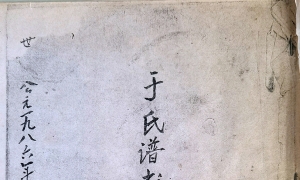 于氏谱
世
公元一九八六年